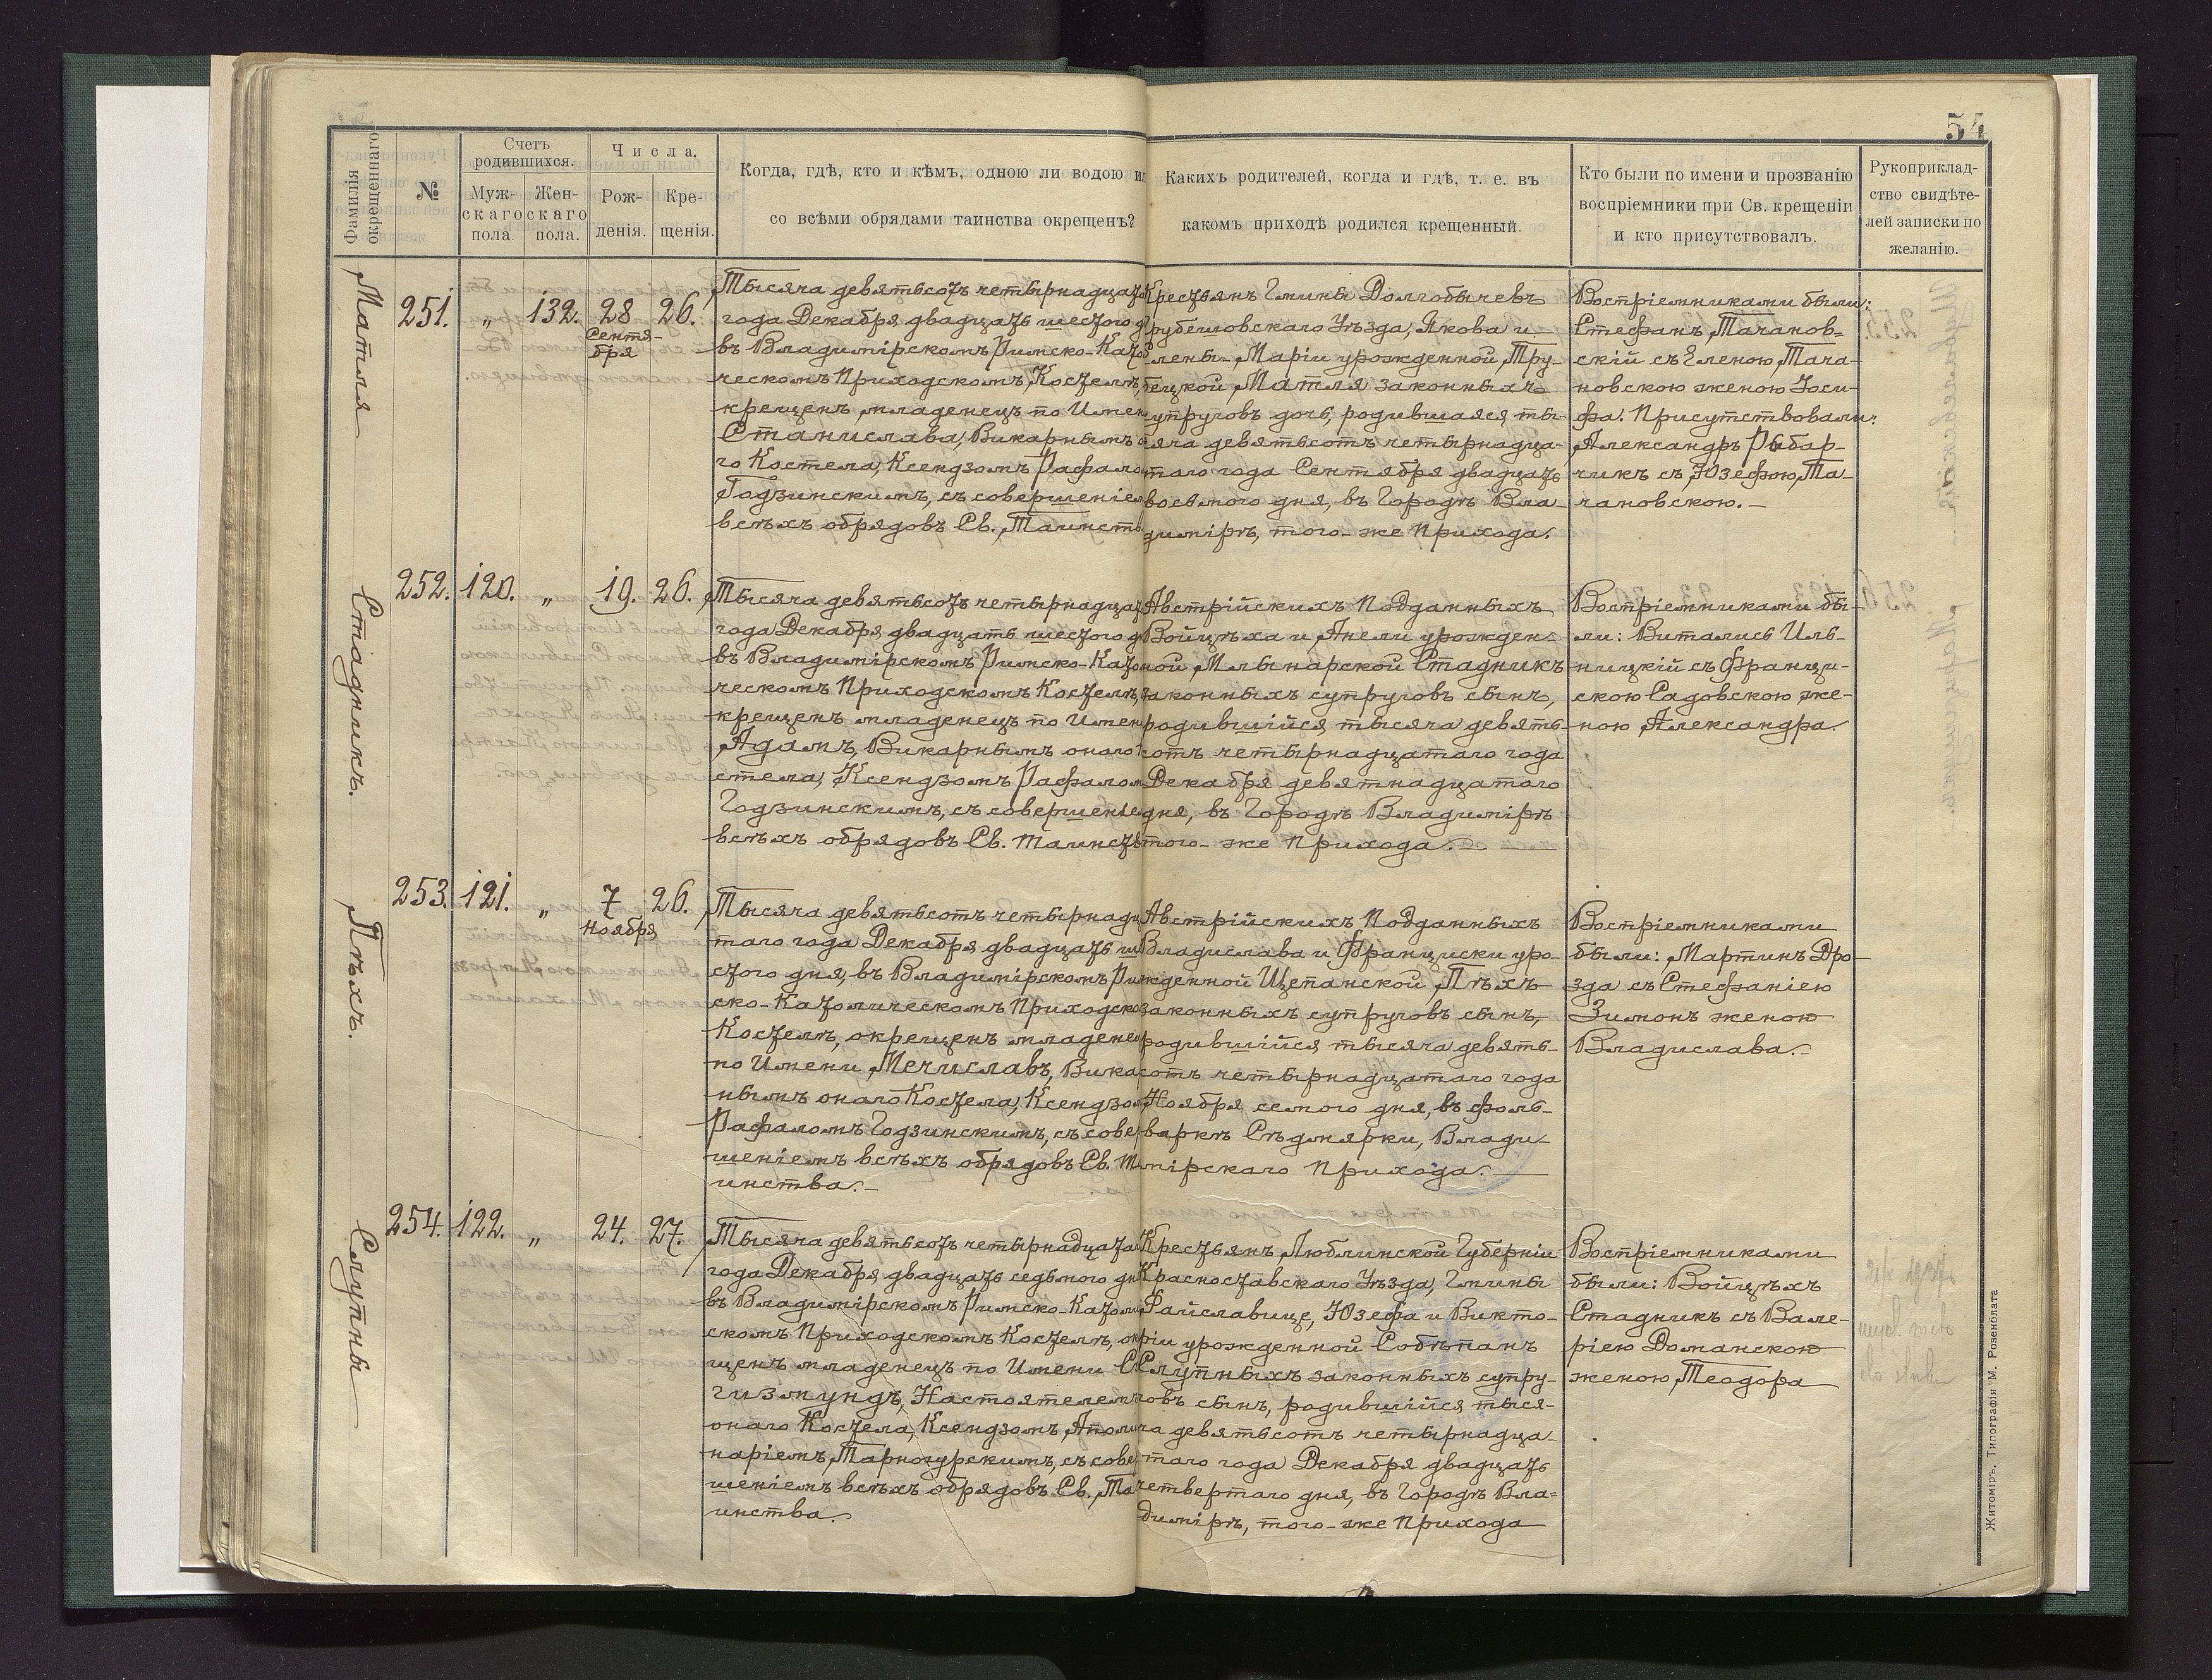 54
Фамилія окрещеннаго
№
Счетъ родившихся.
Муж-скаго пола.
Жен-скаго пола.
Числа.
Рож-денія.
Кре-щенія.
Когда, гдѣ, кто и кѣмъ, одною ли водою или
со всѣми обрядами таинства окрещенъ?
Какихъ родителей, когда и гдѣ, т. е. въ
какомъ приходѣ родился крещенный.
Кто были по имени и прозванію
воспріемники при Св. крещеніи
и кто присутствовалъ.
Рукоприклад-
ство свидѣте-
лей записки по
желанію.
Матля
251. „ 132. 28 Сентя-бря 26.
Тысяча девятьсотъ четырнадцата
года Декабря двадцать шестого д
въ Владимірскомъ Римско-Като
ческомъ Приходскомъ Костелѣ,
крещенъ младенецъ по Имен
Станислава, Викарнымъ о
го Костела, Ксендзомъ Рафало
Годзинскимъ, съ совершеніе
всѣхъ обрядовъ Св. Таинств
Крестьянъ Гмины Долгобычевъ
Грубешовскаго Уѣзда, Якова и
Елены-Маріи урожденной Тру-
бецкой Матля законныхъ
супруговъ дочь, родившаяся ты-
сяча девятьсотъ четырнадца-
таго года Сентября двадцать
восьмого дня, въ Городѣ Вла-
димірѣ, того-же Прихода.
Воспріемниками были:
Стефанъ Тачанов-
скій съ Еленою Тача-
новскою женою Іоси-
фа. Присутствовали:
Александръ Рыбар-
чикъ съ Юзефою Та-
чановскою.
Стадникъ.
252. 120. „ 19. 26.
Тысяча девятьсотъ четырнадцат
года Декабря двадцать шестого д
въ Владимірскомъ Римско-Като
ческомъ Приходскомъ Костелѣ,
крещенъ младенецъ по Имен
Адамъ, Викарнымъ онаго
стела, Ксендзомъ Рафалом
Годзинскимъ, съ совершеніе
всѣхъ обрядовъ Св. Таинств
Австрійскихъ Подданныхъ
Войцѣха и Анели урожден-
ной Млынарской Стадникъ
законныхъ супруговъ сынъ,
родившійся тысяча девять-
сотъ четырнадцатаго года
Декабря девятнадцатаго
дня, въ Городѣ Владимірѣ
того-же Прихода.
Воспріемниками бы-
ли: Виталисъ Иль-
ницкій съ Франци-
скою Садовскою же-
ною Александра.
Пѣхъ.
253. 121. „ 7 Ноября 26.
Тысяча девятьсотъ четырнадц
таго года Декабря двадцать ше
стого дня, въ Владимірскомъ Рим
ско-Католическомъ Приходско
Костелѣ, окрещенъ младене
по Имени Мечиславъ, Вика
нымъ онаго Костела, Ксендзо
Рафаломъ Годзинскимъ, съ сове
шеніемъ всѣхъ обрядовъ Св. Та
инства.
Австрійскихъ Подданныхъ
Владислава и Франциски уро-
жденной Щепанской Пѣхъ
законныхъ супруговъ сынъ,
родившійся тысяча девять-
сотъ четырнадцатаго года
Ноября семого дня, въ фоль-
варкѣ Сѣдмярки, Влади-
мірскаго Прихода.
Воспріемниками
были: Мартинъ Дро-
зда съ Стефаніею
Зимонъ женою
Владислава.
Слупны
254. 122. „ 24. 27.
Тысяча девятьсотъ четырнадцата
года Декабря двадцать седьмого дн
въ Владимірскомъ Римско-Католи
скомъ Приходскомъ Костелѣ, окр
щенъ младенецъ по Имени Си
гизмундъ, Настоятелемъ
онаго Костела, Ксендзомъ Аполи
наріемъ Тарногурскимъ, съ сове
шеніемъ всѣхъ обрядовъ Св. Та
инства.
Крестьянъ Люблинской Губерніи
Красноставскаго Уѣзда, Гмины
Файславице, Юзефа и Викто-
ріи урожденной Собѣпанъ
Слупныхъ законныхъ супру-
говъ сынъ, родившійся тыся-
ча девятьсотъ четырнадца-
таго года Декабря двадцать
четвертаго дня, въ Городѣ Вла-
димірѣ, того-же Прихода
Воспріемниками
были: Войцѣхъ
Стадникъ съ Вале-
ріею Доманскою
женою Теодора
Житоміръ. Типографія М. Розенблата